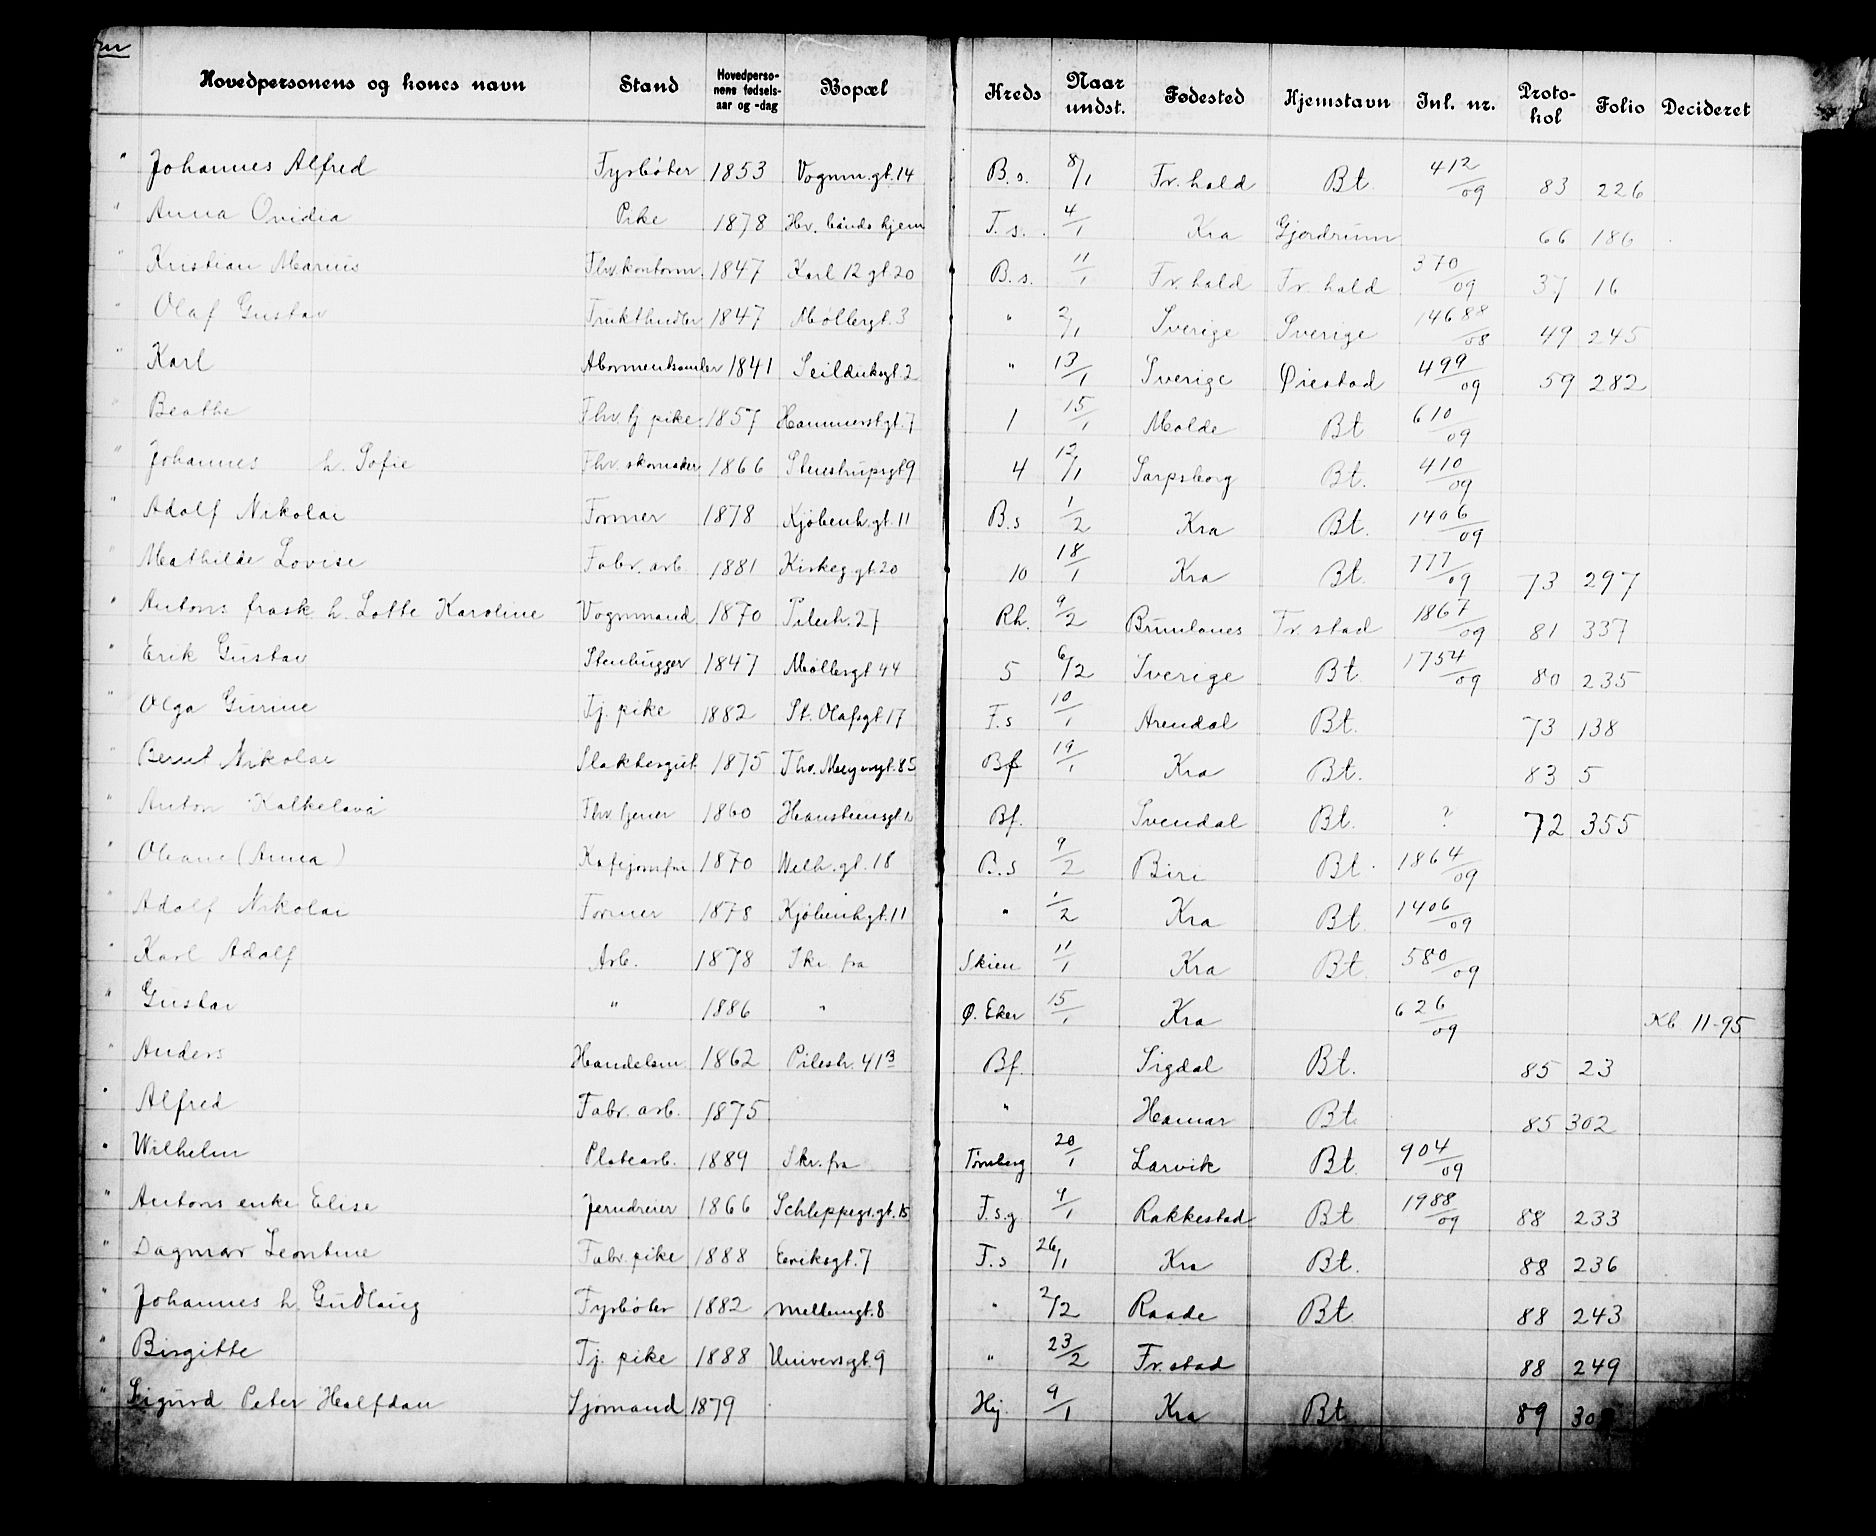 Hovedpersonens og kones navn | Stand | Hovedpersonens fødselsaar og -dag | Bopæl | Kreds | Naar undst. | Fødested | Hjemstavn | Inl. nr. | Protokol | Folio | Decideret
" Johannes Alfred | Fyrbøter | 1853 | Vognm.gt. 14 | B.s. | 8/1 | Fr.hald | Bt. | 412/09 | 83 | 226
" Anna Ovidia | Pike | 1878 | Hv. bånds hjem | F.s. | 4/1 | Kra | Gjerdrum | | 66 | 186
" Kristian Marius | Fhv. kontorm. | 1847 | Karl 12 gt. 20 | B.s. | 11/1 | Fr.hald | Fr.hald | 370/09 | 37 | 16
" Olaf Gustav | Frukthndler | 1847 | Møllergt. 3 | " | 2/1 | Sverige | Sverige | 14688/08 | 49 | 245
" Karl | | 1841 | Seilduksgt. 2 | " | 13/1 | Sverige | Øiestad | 499/09 | 59 | 282
" Beathe | Fhv. tj. pike | 1857 | Hammerstgt. 7 | 1 | 15/1 | Molde | Bt | 610/09
" Johannes h. Sofie | Fhv. skomaker | 1866 | Stenstrupsgt 9 | 4 | 12/1 | Sarpsborg | Bt. | 410/09
" Adolf Nikolai | Former | 1878 | Kjøbenh.gt. 11 | B.s | 1/2 | Kra | Bt. | 1406/09
" Mathilde Lovise | Fabr. arb. | 1881 | Kirkeg.gt. 20 | 10 | 18/1 | Kra | Bt. | 777/09 | 73 | 297
" Antons frask. h. Lotte Karoline | Vognmand | 1870 | Pilestr. 27 | Rh. | 9/2 | Brunlanes | Fr.stad | 1867/09 | 81 | 337
" Erik Gustav | Stenhugger | 1847 | Møllergt 44 | 5 | 6/2 | Sverige | Bt. | 1754/09 | 80 | 235
" Olga Gurine | Tj. pike | 1882 | St. Olafsgt 17 | F.s | 10/1 | Arendal | Bt. | | 73 | 138
" Bernt Nikolai | Slaktergut. | 1875 | Thv. Meyersgt. 85 | Bf | 19/1 | Kra | Bt. | | 83 | 5
" Anton Kalkelavå | Fhv. tjener | 1860 | Hansteensgt | Bf. | | Svendal | Bt. | ? | 72 | 355
" Oleane (Anna) | Kafejomfru | 1870 | Welh.gt. 18 | B.s | 9/2 | Biri | Bt. | 1864/09
" Adolf Nikolai | Former | 1878 | Kjøbenhgt. 11 | " | 1/2 | Kra | Bt | 1406/09
" Karl Adolf | Arb. | 1878 | Skr. fra | Skien | 11/1 | Kra | Bt. | 580/09
" Gustav | " | 1886 | " | Ø. Eker | 15/1 | Kra | | 626/09 | | | Kb 11-95
" Anders | Handelsm. | 1862 | Pilestr. 41 B | Bf. | | Sigdal | Bt. | | 85 | 23
" Alfred | Fabr. arb. | 1875 | | " | | Hamar | Bt. | | 85 | 302
" Wilhelm | Platearb. | 1889 | Skr. fra | Tønsberg | 20/1 | Larvik | Bt. | 904/09
" Antons enke Elise | Jerndreier | 1866 | Schleppegr.gt. 15 | F.s.g | 9/1 | Rakkestad | Bt | 1988/09 | 88 | 233
" Dagmar Leontine | Fabr. pike | 1888 | Eeriksgt. 7 | F.s | 26/1 | Kra | Bt. | | 88 | 236
" Johannes h. Gudlaug | Fyrbøter | 1882 | Mellemgt. 8 | " | 2/2 | Raade | Bt | | 88 | 243
" Birgitte | Tj. pike | 1888 | Universgt. 9 | " | 23/2 | Fr.stad | | | 88 | 249
" Sigurd Peter Halfdan | Sjømand | 1879 | | Hj. | 9/1 | Kra | Bt | | 89